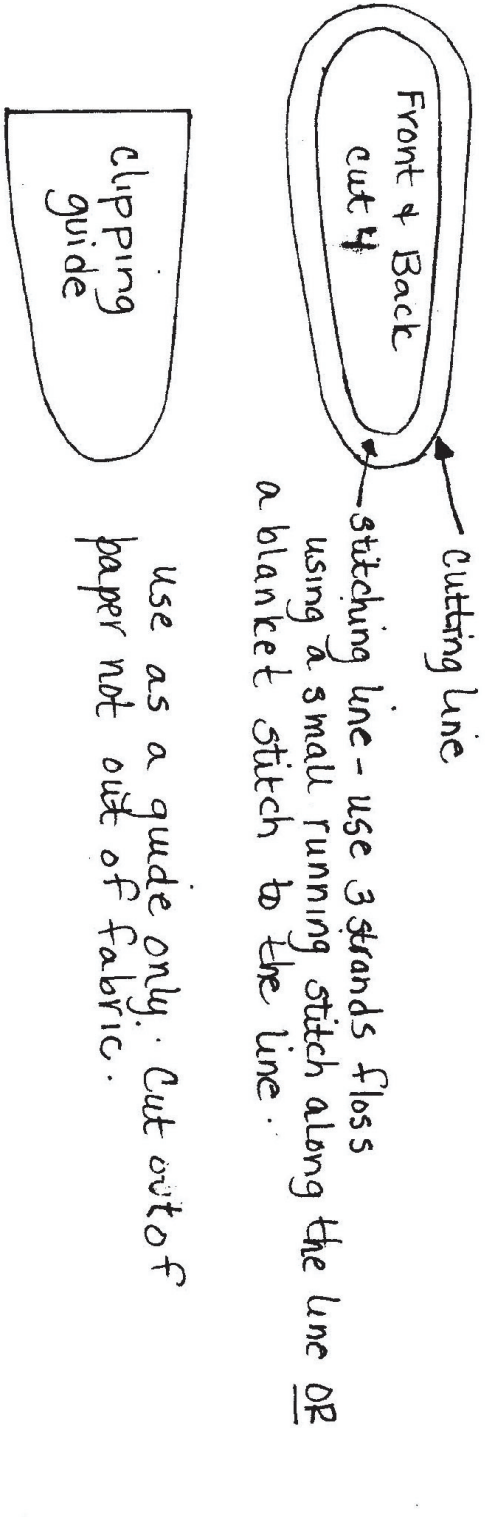 Front & Back
cut 4
Cutting line
stitching line - use 3 strands floss
using a small running stitch along the line OR
a blanket stitch to the line.
clipping
guide
use as a guide only. Cut out of
paper not out of fabric.